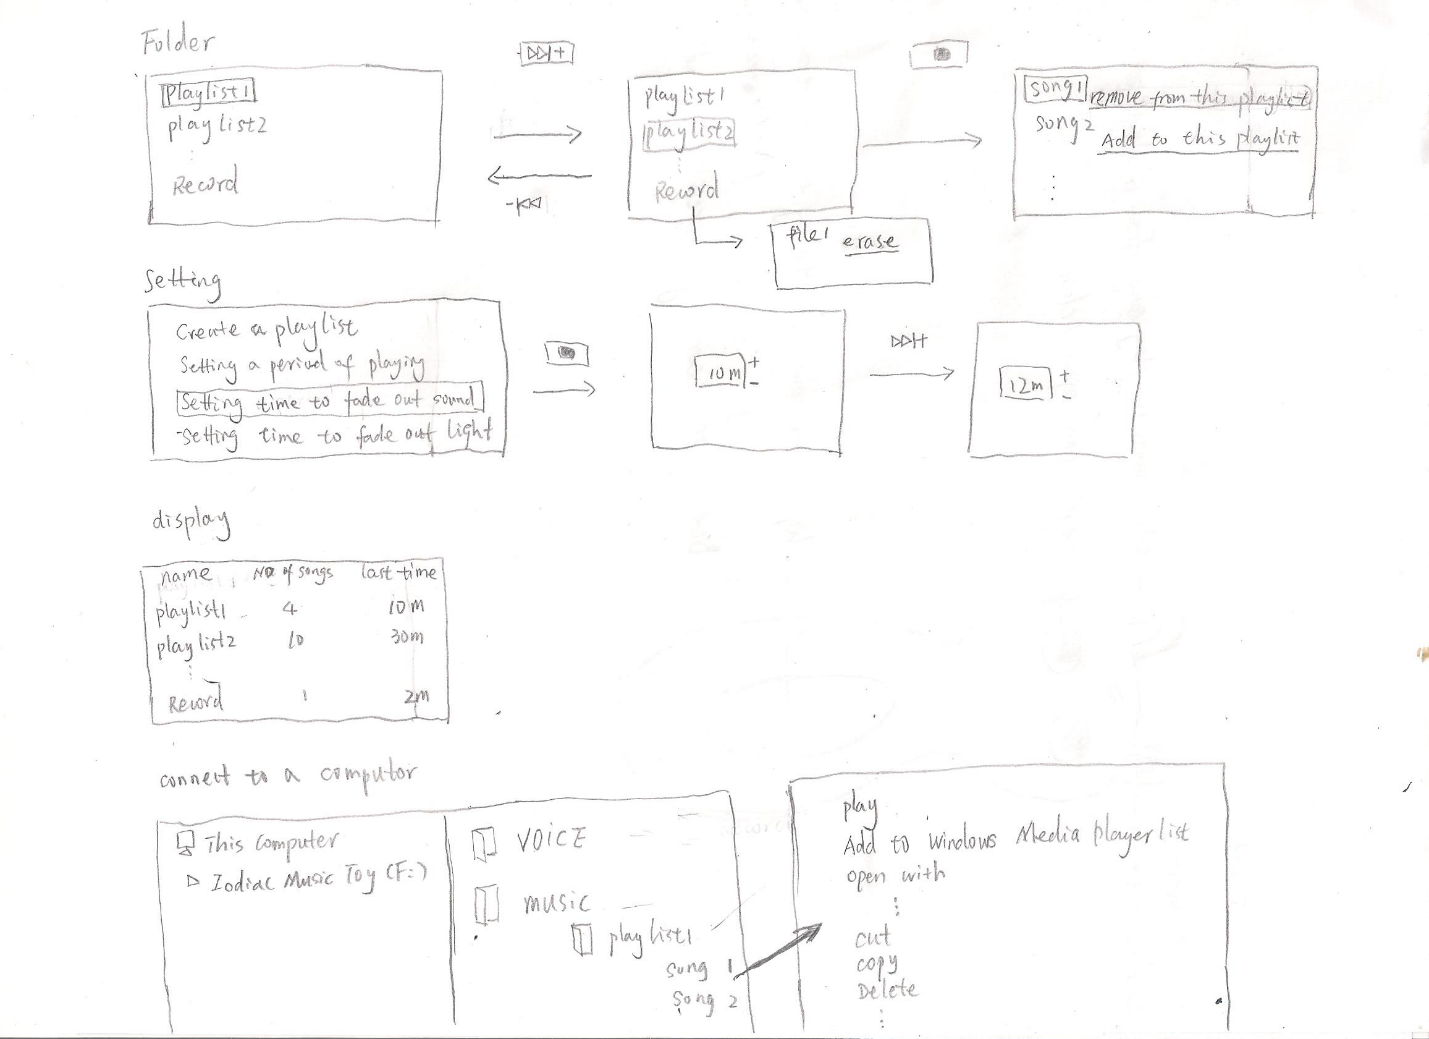 Folder
playlist1
playlist2
Record
▷▷|+
-|◁◁
playlist1
playlist2
Record
file1 erase
song1 remove from this playlist
song2 Add to this playlist
Setting
Create a playlist
Setting a period of playing
Setting time to fade out sound
-Setting time to fade out light
10m + -
▷▷|+
12m + -
display
name No of songs last time
playlist1 4 10m
playlist2 10 30m
Record 1 2m
connect to a computor
This Computer
▷ Zodiac Music Toy (F:)
VOICE
MUSIC
playlist1
song 1
song 2
play
Add to Windows Media Player list
open with
cut
copy
Delete